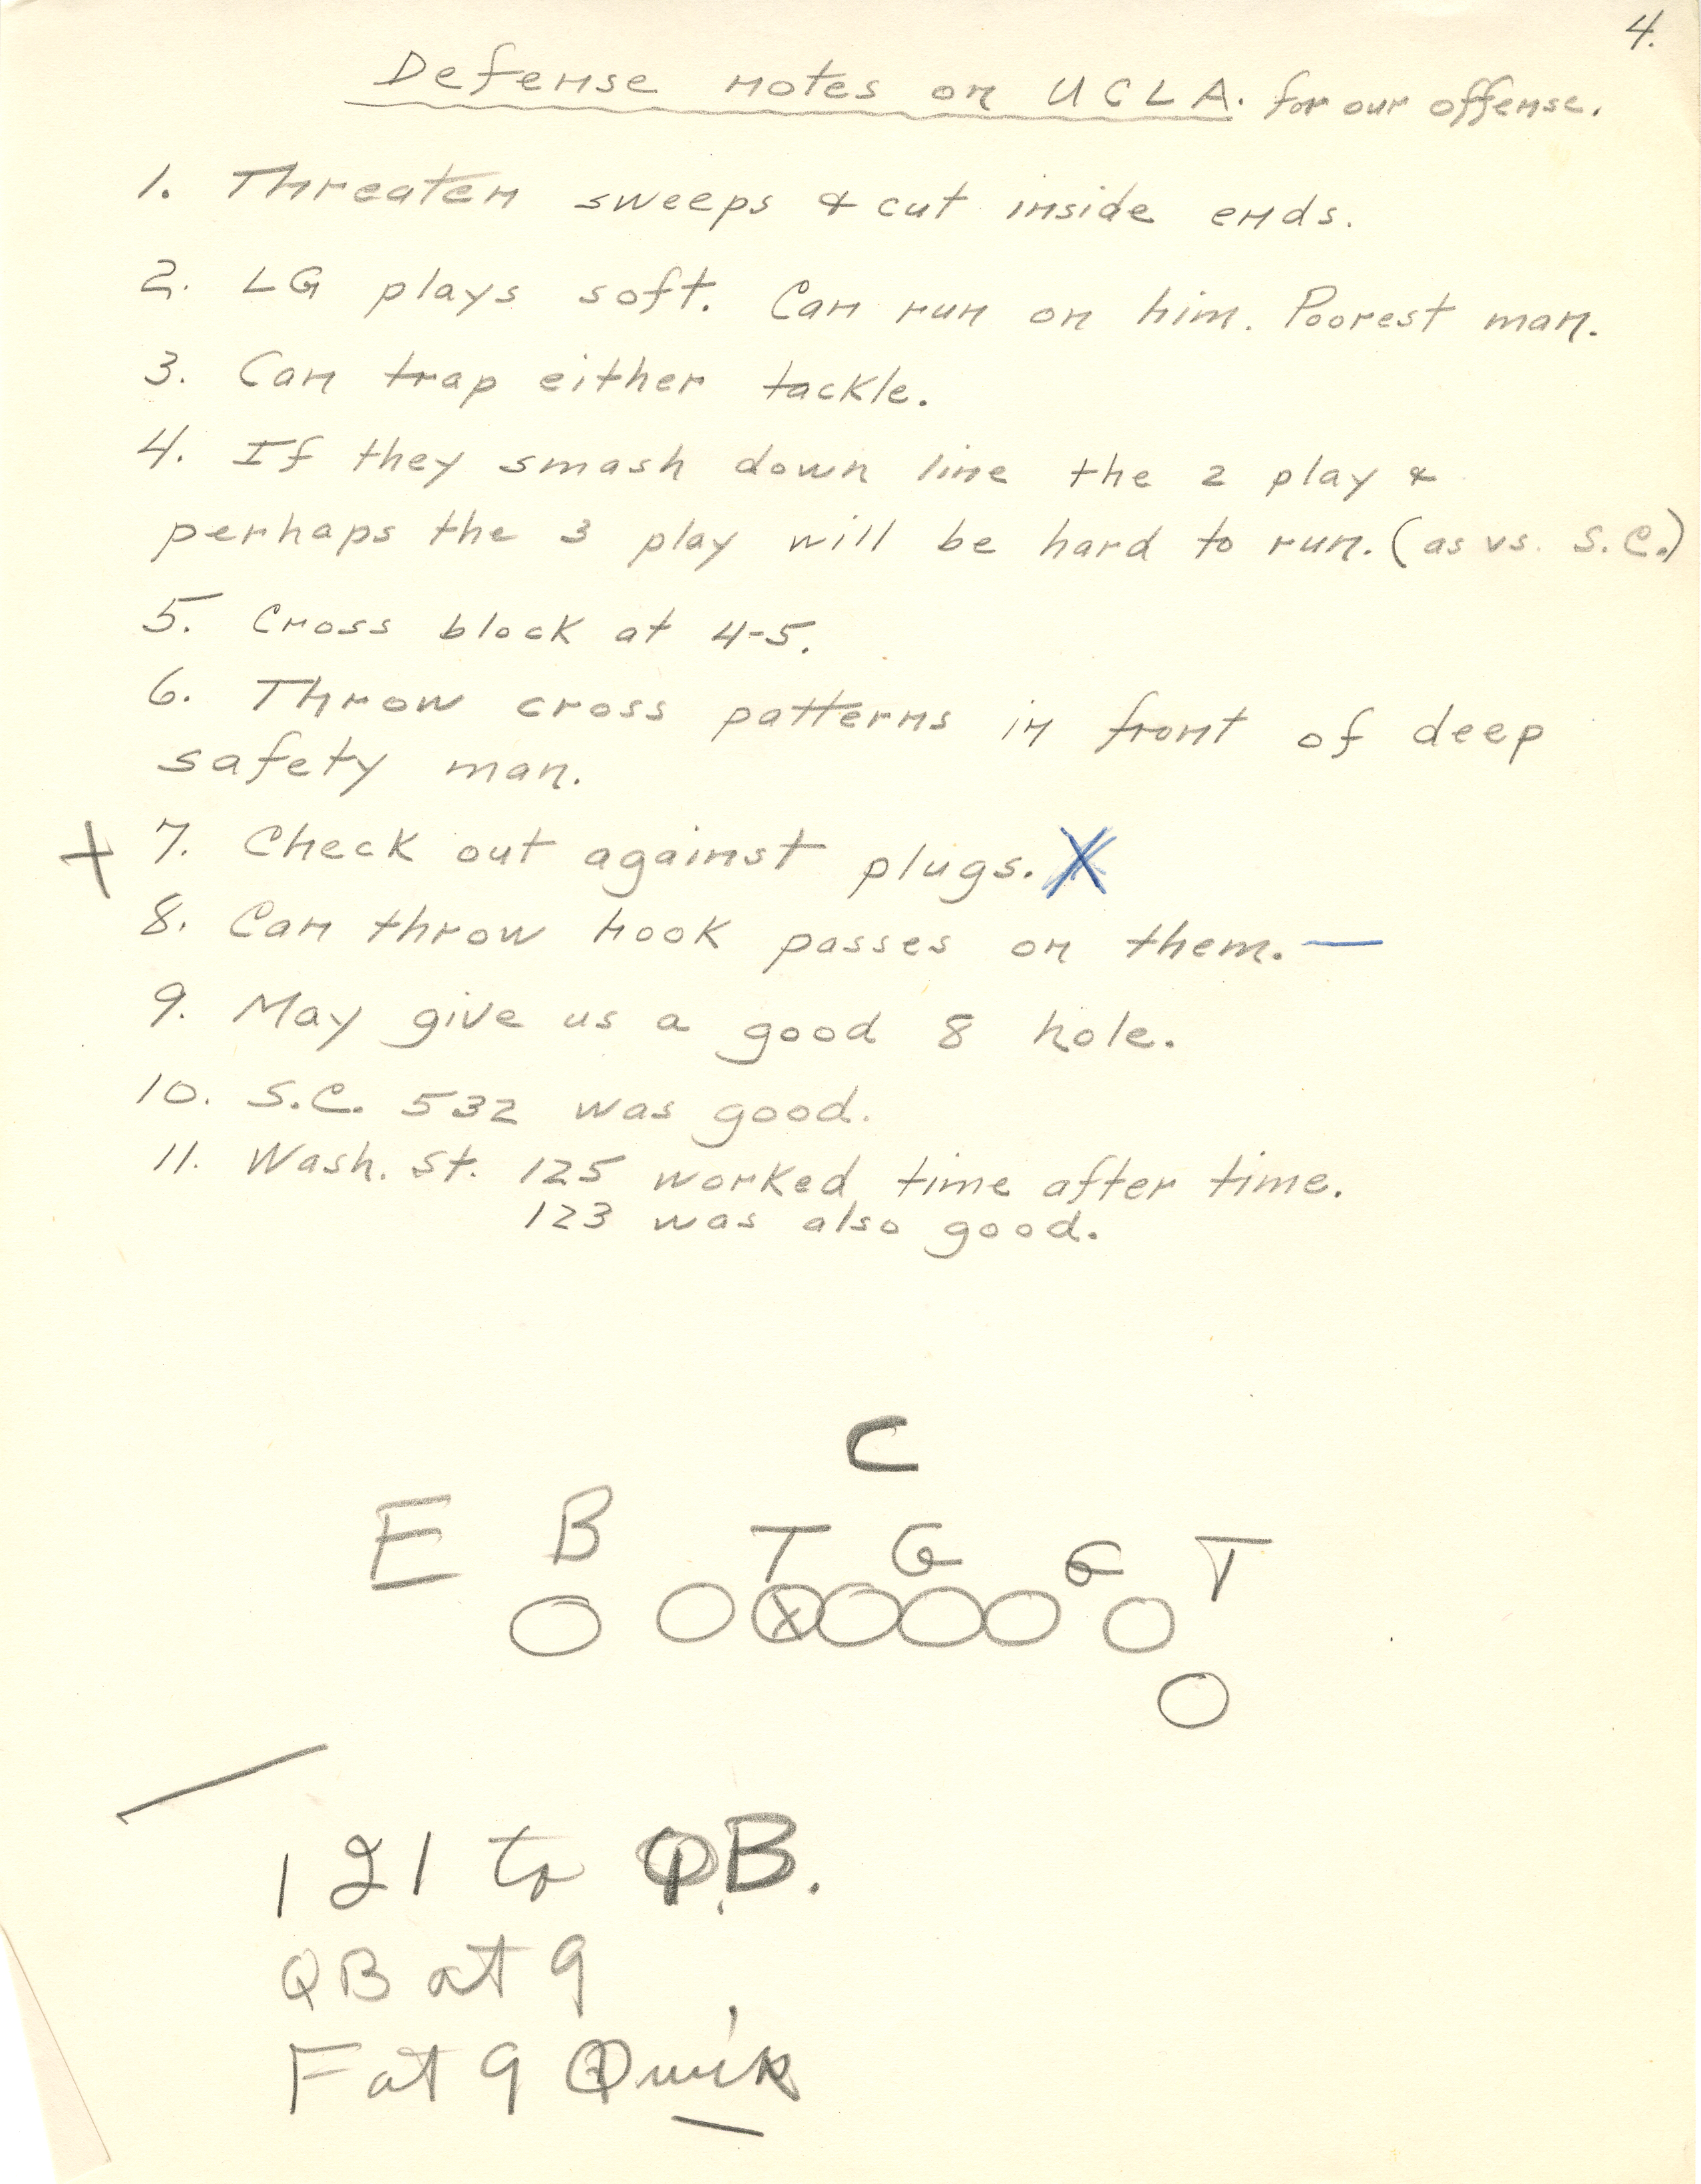 4.
Defense notes on UCLA. for our offense.
1. Threaten sweeps & cut inside ends.
2. LG plays soft. Can run on him. Poorest man.
3. Can trap either tackle.
4. If they smash down line the 2 play &
perhaps the 3 play will be hard to run. (as vs. S.C.)
5. Cross block at 4-5.
6. Throw cross patterns in front of deep
safety man.
+ 7. Check out against plugs. X
8. Can throw hook passes on them. —
9. May give us a good 8 hole.
10. S.C. 532 was good.
11. Wash. St. 125 worked time after time.
123 was also good.
C
E B T G G T
X
121 to QB.
QB at 9
F at 9 Quik